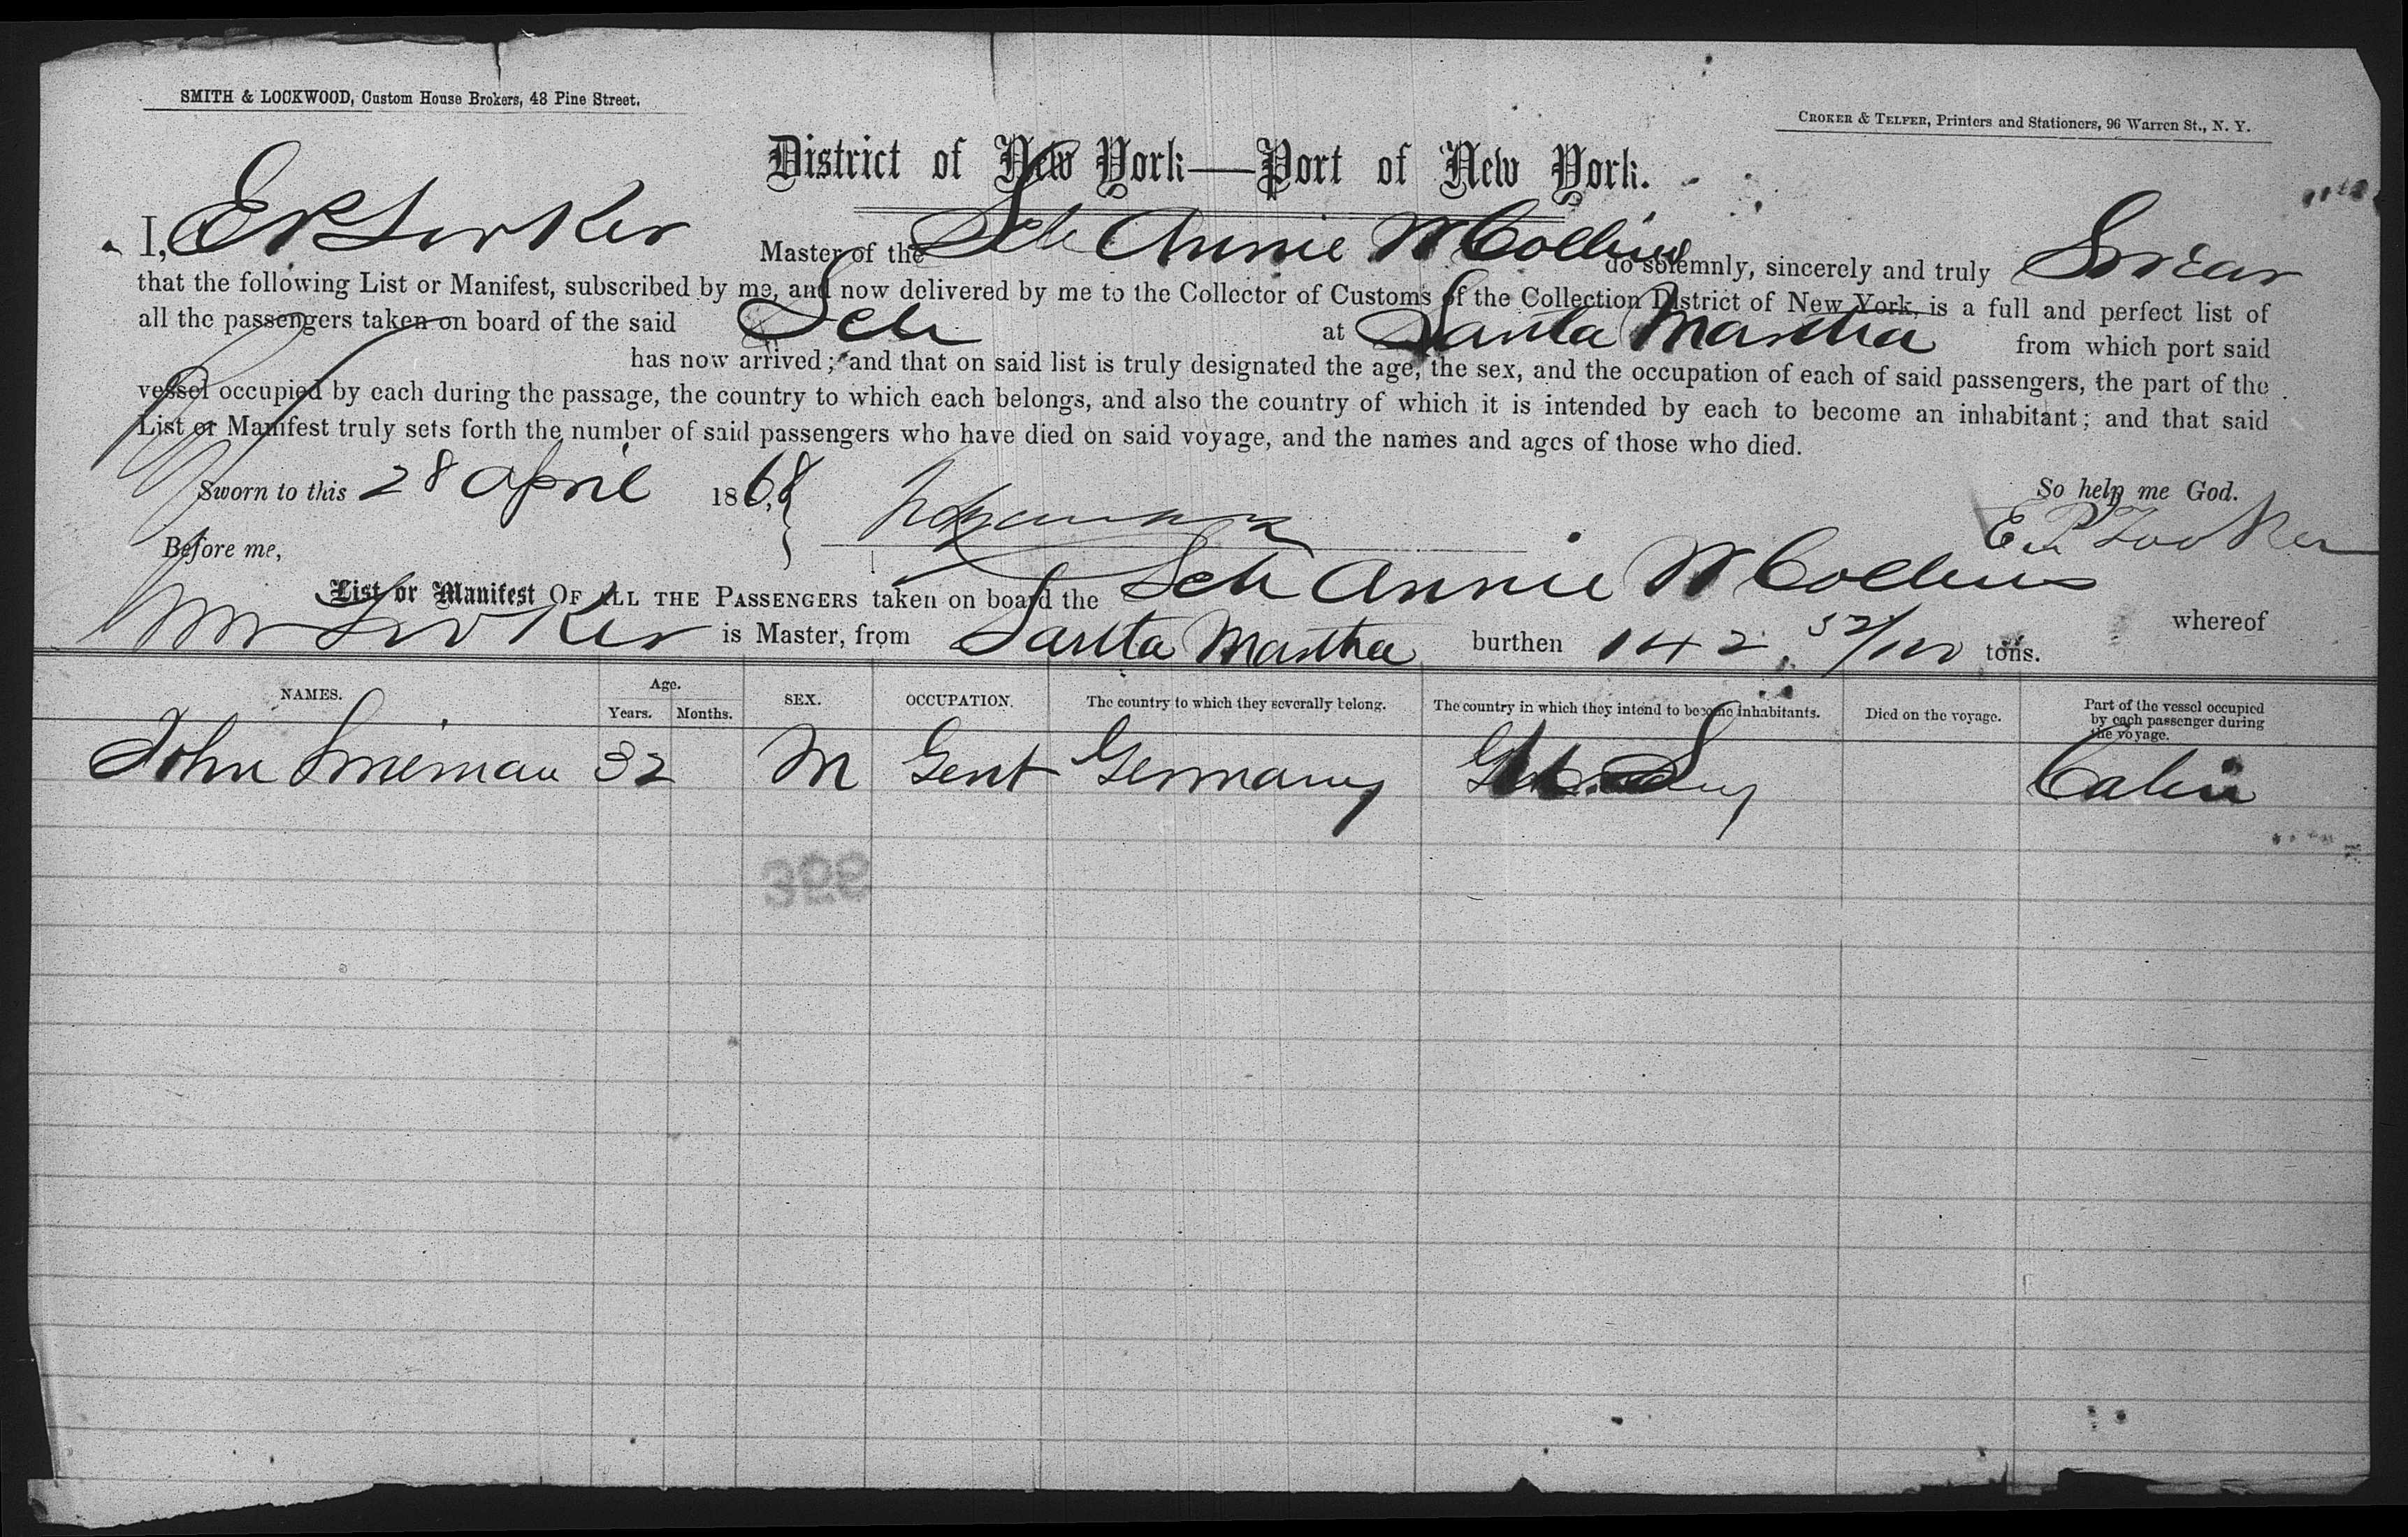 SMITH & LOCKWOOD, Custom House Brokers, 48 Pine Street.
CROKER & TELFER, Printers and Stationers, 96 Warren St., N. Y.
District of New York—Port of New York.
I, E P Tooker Master of the Sch Annie W Collins do solemnly, sincerely and truly Swear
that the following List or Manifest, subscribed by me, and now delivered by me to the Collector of Customs of the Collection District of New York, is a full and perfect list of
all the passengers taken on board of the said Sch at Santa Martha from which port said
has now arrived; and that on said list is truly designated the age, the sex, and the occupation of each of said passengers, the part of the
vessel occupied by each during the passage, the country to which each belongs, and also the country of which it is intended by each to become an inhabitant; and that said
List or Manifest truly sets forth the number of said passengers who have died on said voyage, and the names and ages of those who died.
Sworn to this 28 April 1868, So help me God.
Before me, E P Tooker
List or Manifest OF ALL THE PASSENGERS taken on board the Sch Annie W Collins whereof
Tooker is Master, from Santa Martha burthen 142. 52/100 tons.
NAMES. Age. Years. Months. SEX. OCCUPATION. The country to which they severally belong. The country in which they intend to become inhabitants. Died on the voyage. Part of the vessel occupied by each passenger during the voyage.
John 32 M Gent Germany Cabin